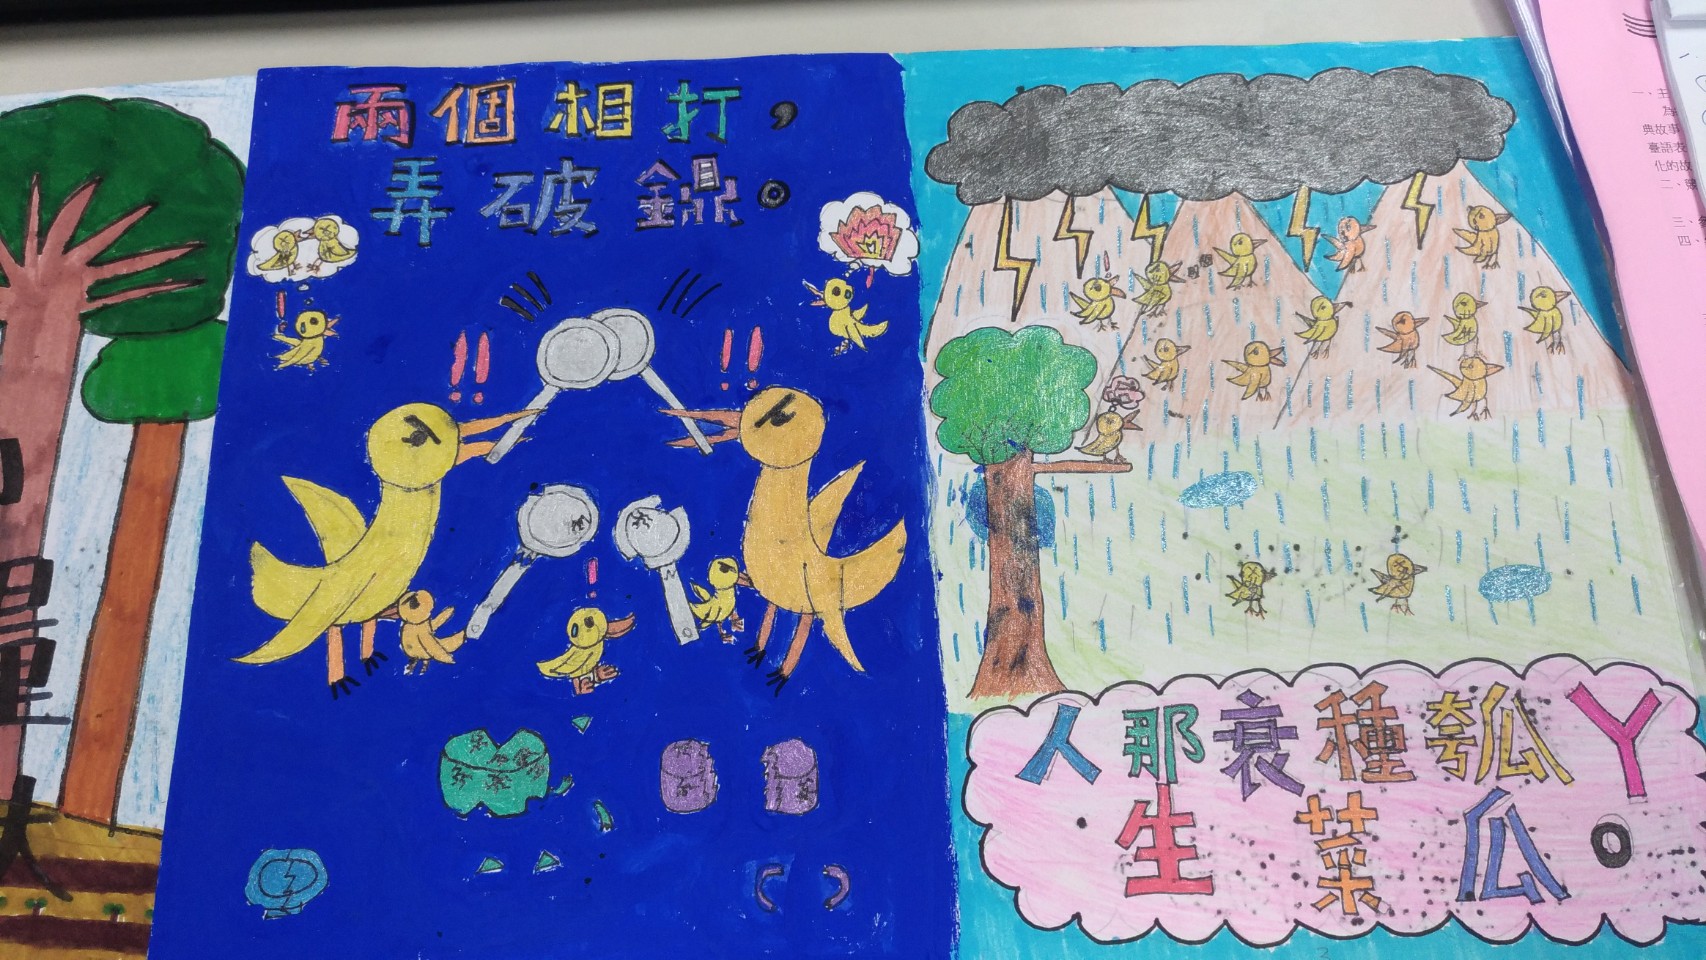 兩個相打，
弄破鐤。
人那衰種瓠丫
生菜瓜。
一、主
典故事
臺語表
化的故
二、
三、
四、